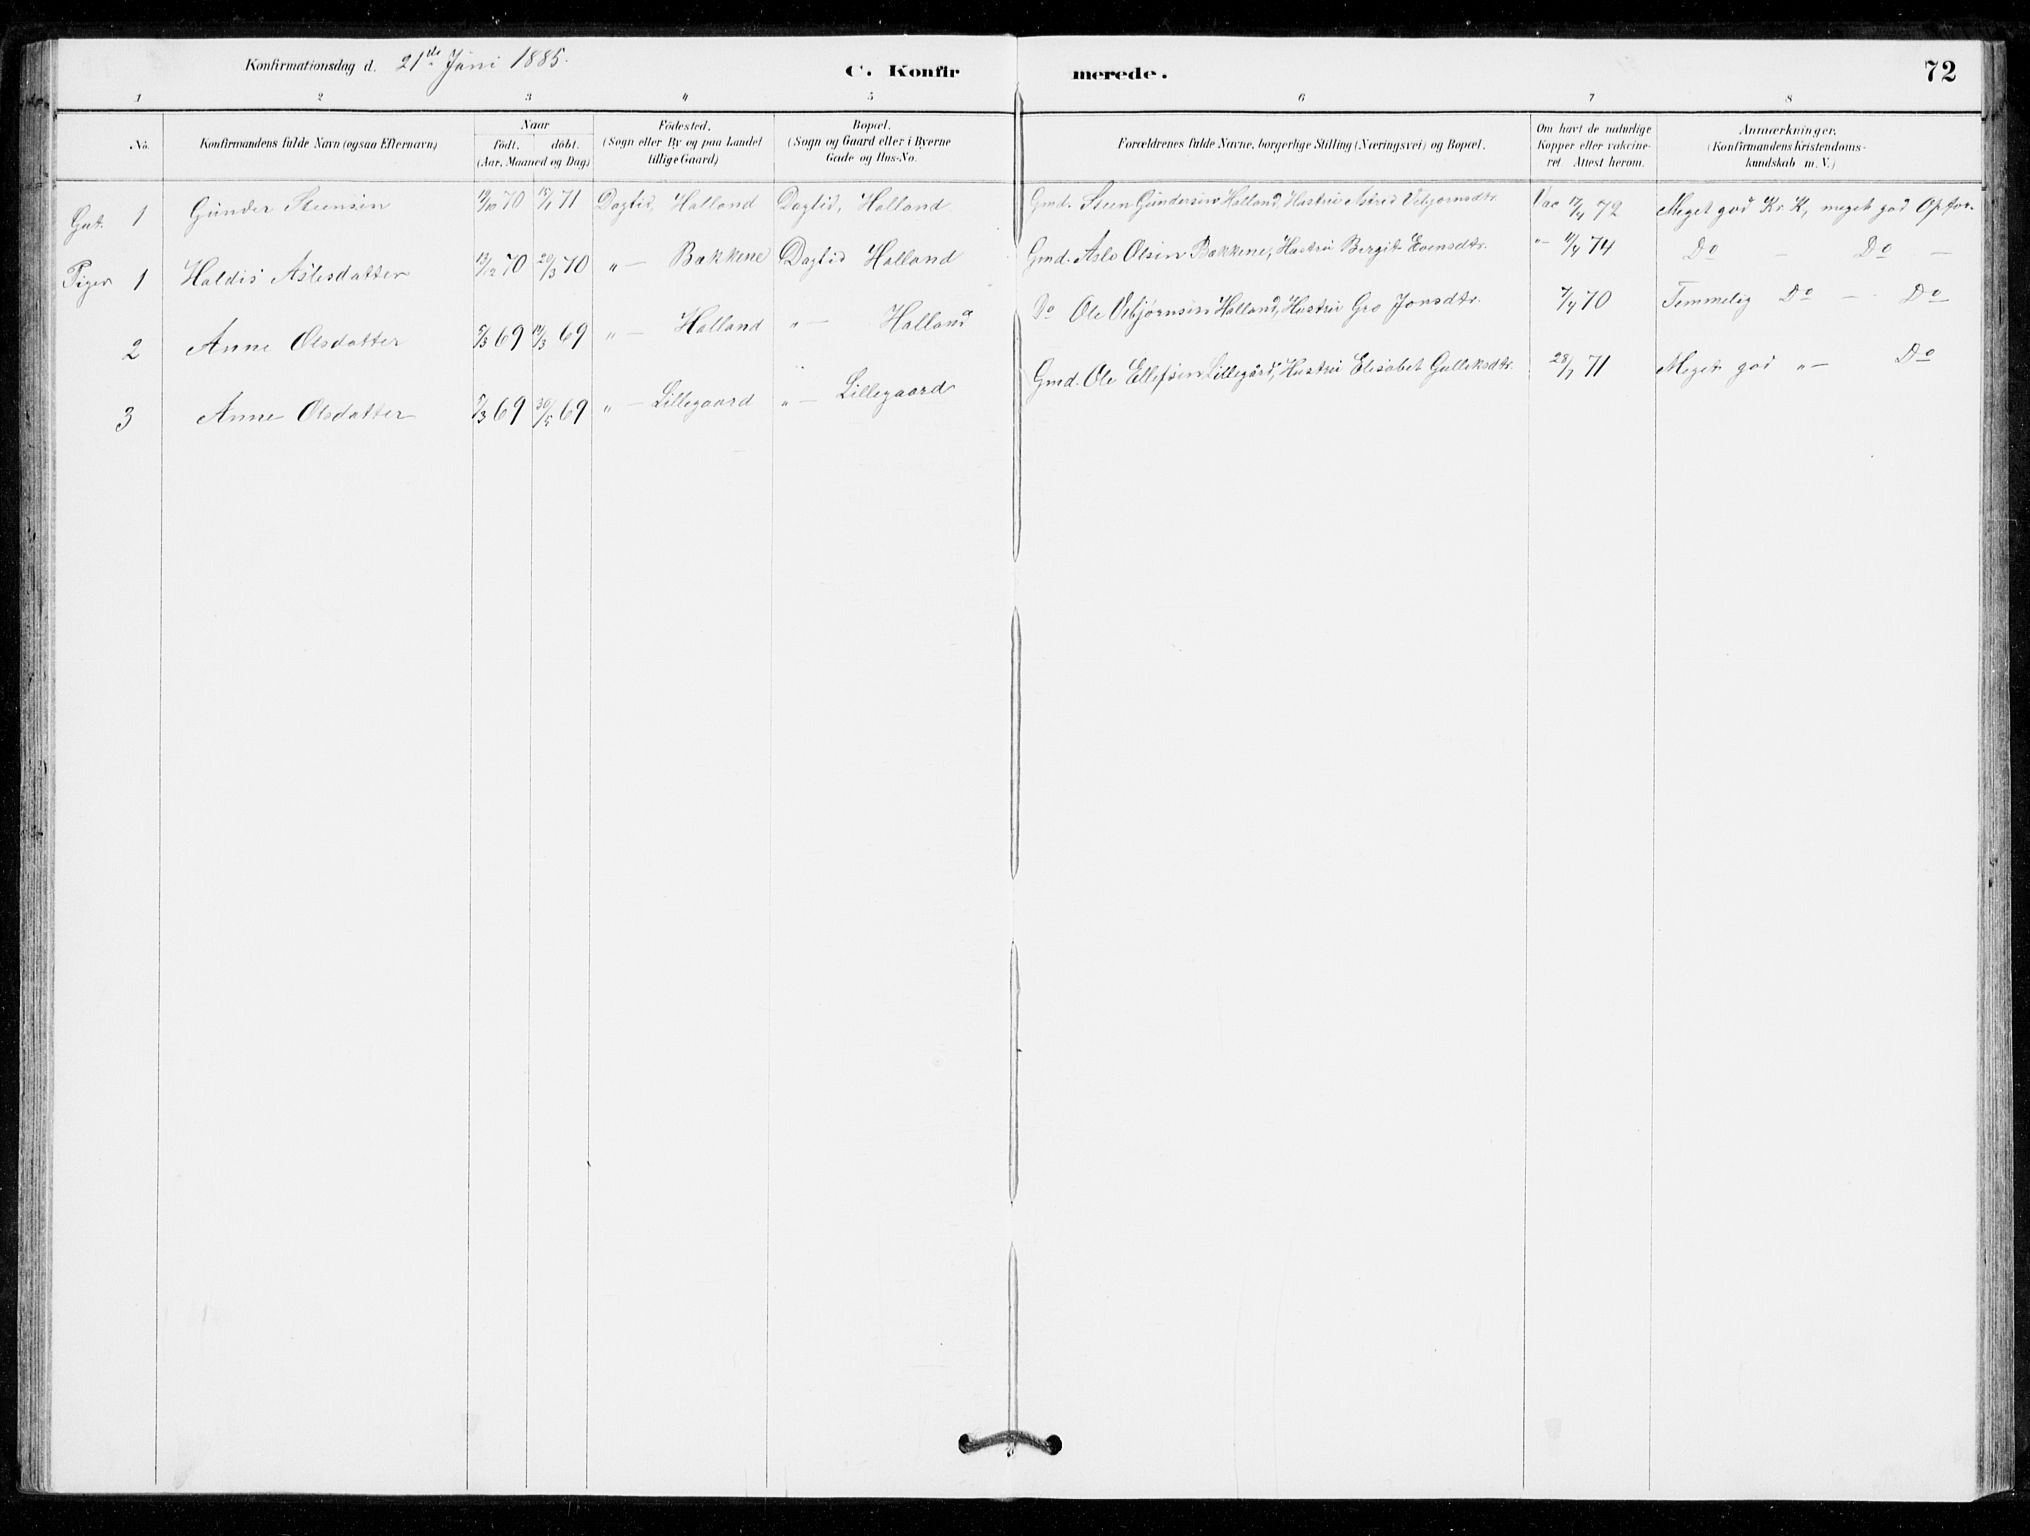 Konfirmationsdag d. 21de Juni 1885.
C. Konfirmerede.
72
1 2 3 4 5 6 7 8
No.
Konfirmandens fulde Navn (ogsaa Efternavn)
Naar
födt. döbt.
(Aar, Maaned og Dag)
Födested.
(Sogn eller By og paa Landet
tillige Gaard)
Bopæl.
(Sogn og Gaard eller i Byerne
Gade og Hus-No.
Forældrenes fulde Navne, borgerlige Stilling (Næringsvei) og Bopæl.
Om havt de naturlige
Kopper eller vakcine-
ret. Attest herom.
Anmærkninger.
(Konfirmandens Kristendoms-
kundskab m. V.)
Gut. 1 Gunder Steensen 19/10 70 15/1 71 Daglid, Halland Daglid, Halland Gmd. Steen Gundersen Halland, Hustru Astrid Vebjørnsdtr. Vac 17/4 72 Meget god Kr. K, meget god Opfør.
Piger 1 Haldis Aslesdatter 13/12 70 20/3 70 „ — Bakkene Daglid Halland Gmd. Aslo Olsen Bakkene, Hustru Bergit Evensdtr. „ — 11/4 74 Do — Do —
2 Anne Olsdatter 5/3 69 14/3 69 „ — Halland „ — Halland Do Ole Vebjørnsen Halland, Hustru Gro Jonsdtr. 7/4 70 Temmelig Do — Do
3 Anne Olsdatter 7/3 69 30/5 69 „ — Lillegaard „ — Lillegaard Gmd. Ole Ellefsen Lillegård, Hustru Elisabet Gulleksdtr. 28/7 71 Meget god „ — Do